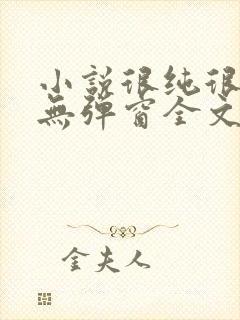 小說很纯很
無弹窗全文
金夫人